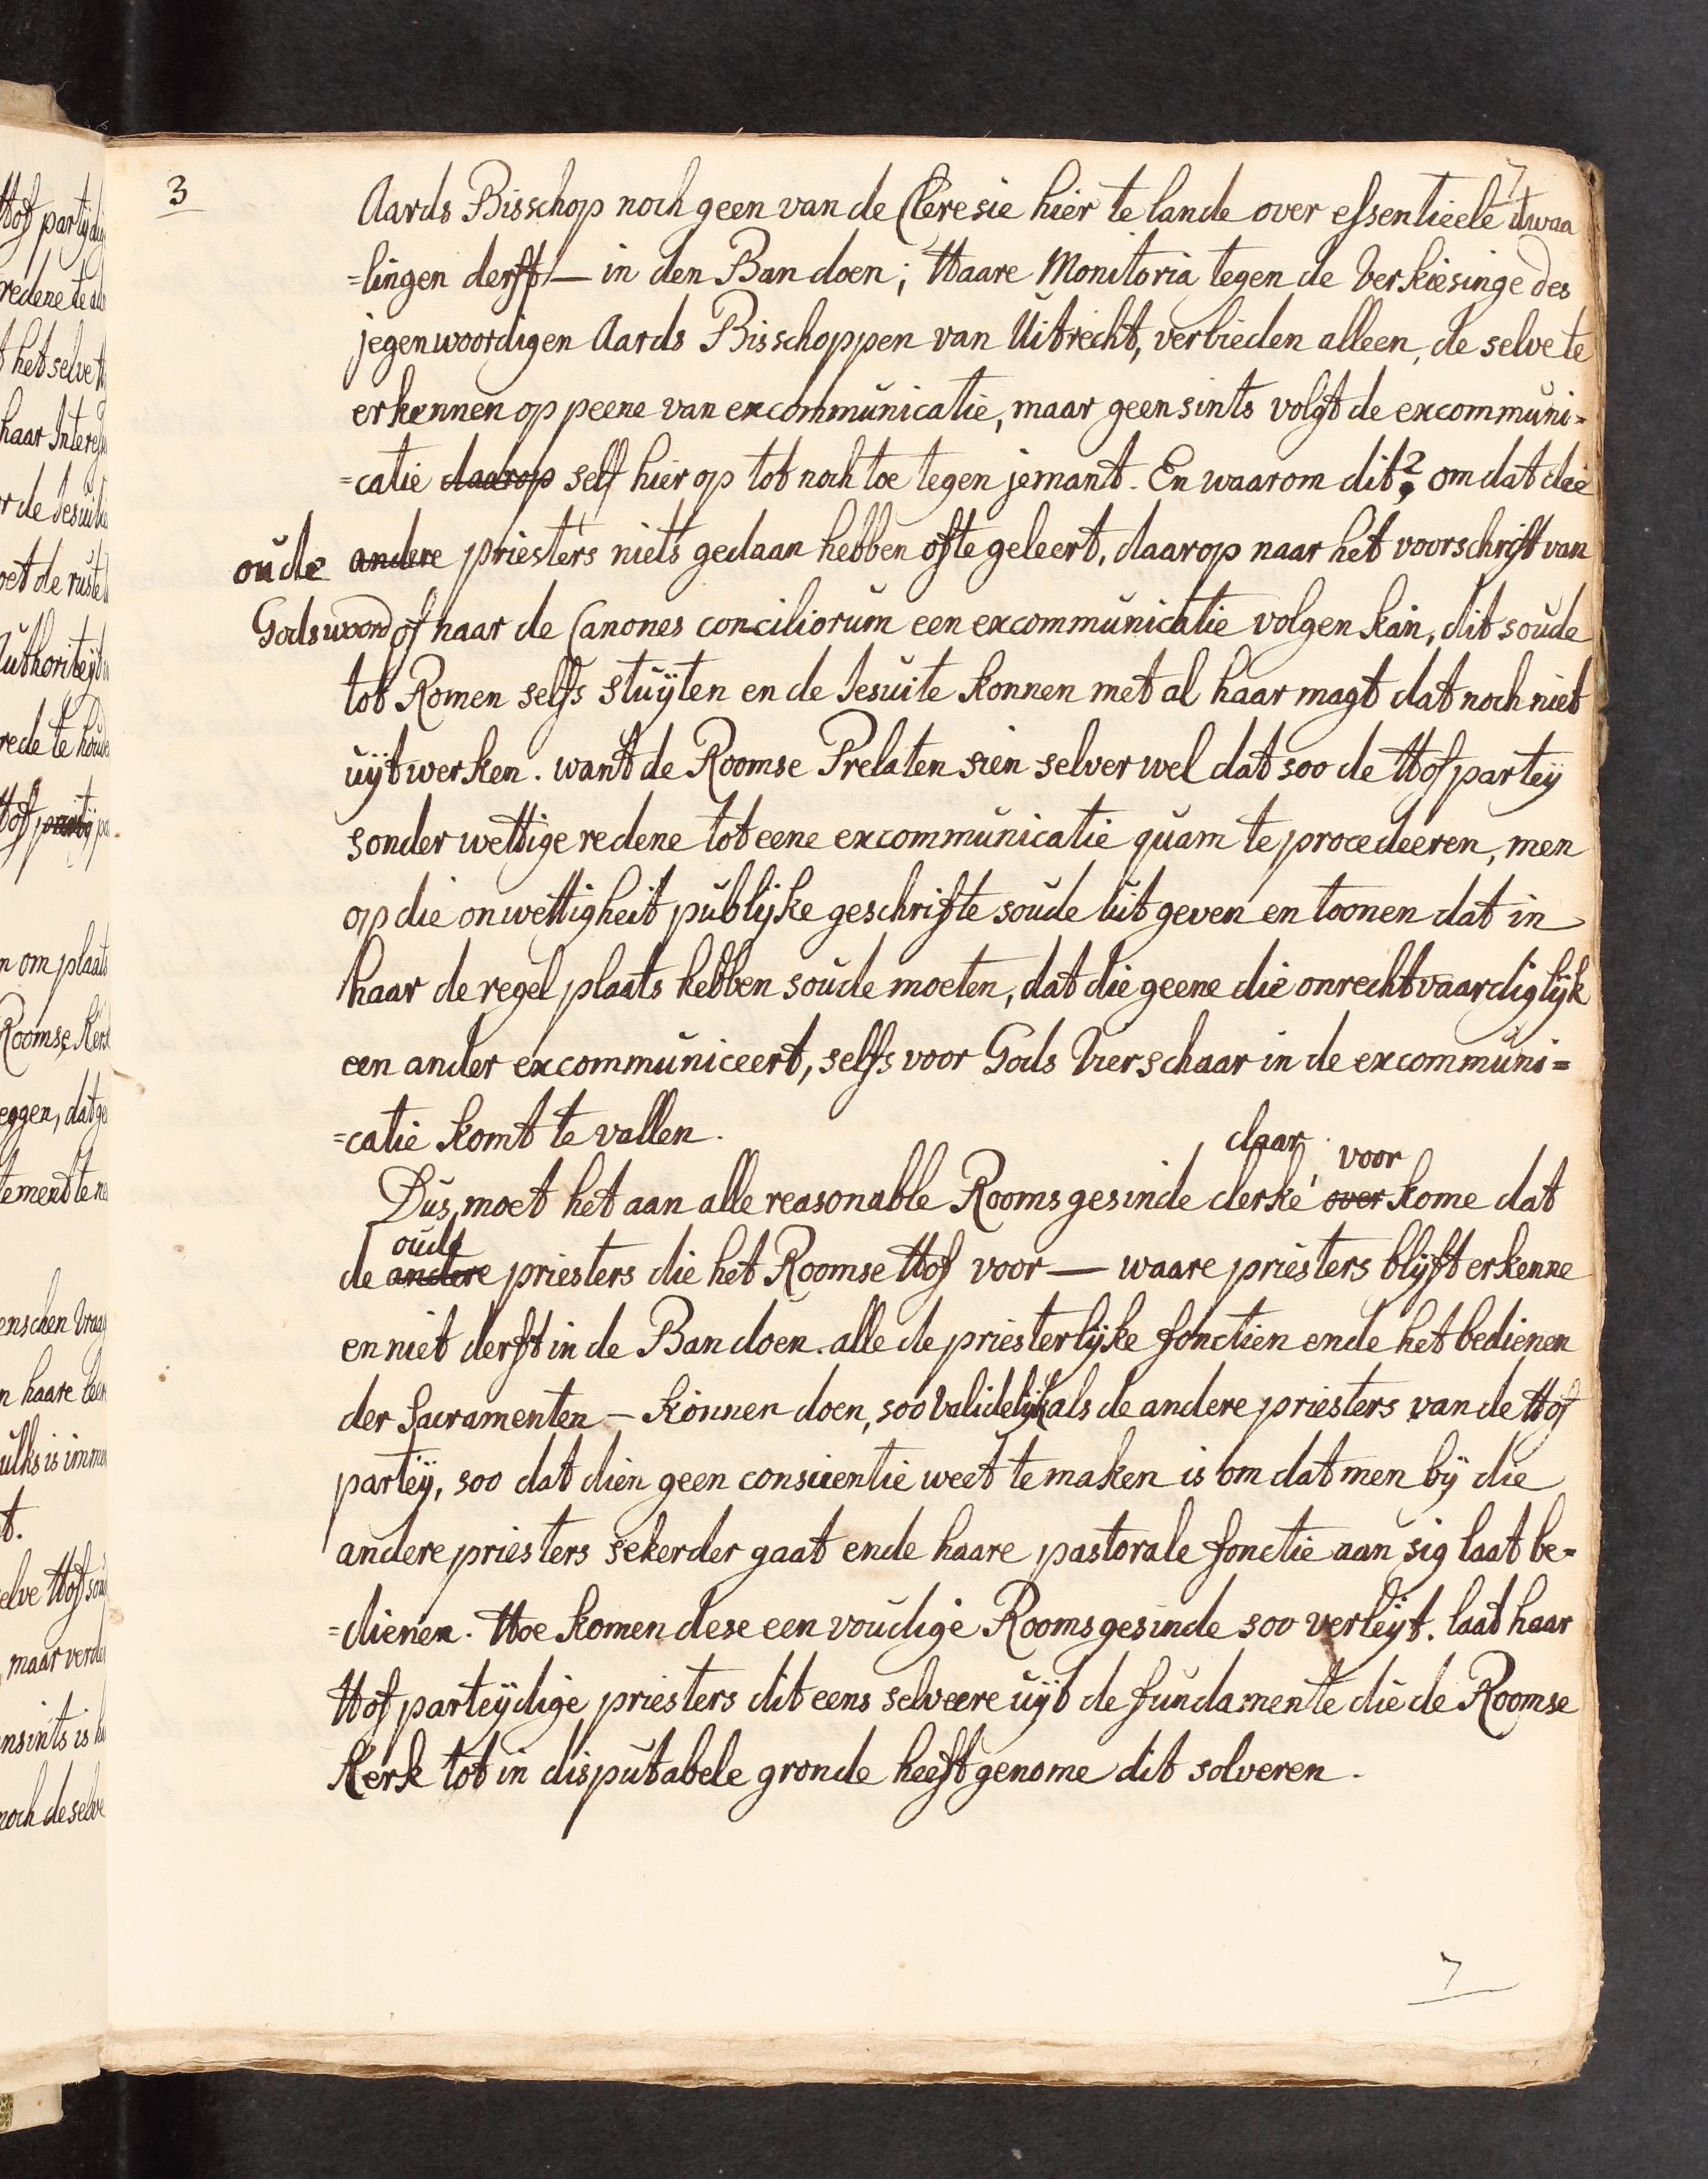 3
7
Aards Bisschop noch geen van de Cleresie hier te lande over essentieele dwaa
=lingen derft — in den Ban doen; Haare Monitoria tegen de Verkiesinge des
jegenwoordigen Aards Bisschoppen van Uitrecht, verbieden alleen, de selve te
erkennen op peene van excommunicatie, maar geensints volgt de excommuni=
=catie daarop self hier op tot noch toe tegen jemant. En waarom dit? om dat die
oude andere priesters niets gedaan hebben ofte geleert, daarop naar het voorschrift van
Gods woord of naar de Canones conciliorum een excommunicatie volgen kan, dit soude
tot Romen selfs stuÿten en de Jesuite konnen met al haar magt dat noch niet
uÿtwerken. want de Roomse Prelaten sien selver wel dat soo de Hof parteÿ
sonder wettige redene tot eene excommunicatie quam te procedeeren, men
op die onwettigheit publijke geschrifte soude uitgeven en toonen dat in
haar de regel plaats hebben soude moeten, dat die geene die onrechtvaardiglijk
een ander excommuniceert, selfs voor Gods Vierschaar in de excommuni=
=catie komt te vallen.
claar voor
Dus, moet het aan alle reasonable Rooms gesinde clerke over kome dat
oude
de andere priesters die het Roomse Hof voor — waare priesters blijft erkenne
en niet derft in de Ban doen. alle de priesterlijke fonctien ende het bedienen
der Sacramenten — konnen doen, soo validelijk als de andere priesters van de Hof
parteÿ, soo dat dien geen conscientie weet te maken is om dat men bÿ die
andere priesters sekerder gaat ende haare pastorale fonctie aan sig laat be=
=dienen. Hoe komen dese eenvoudige Rooms gesinde soo verleÿt. laat haar
Hof parteÿdige priesters dit eens selveere uÿt de fundamente die de Roomse
Kerk tot in disputabele gronde heeft genome dit solveren.
7